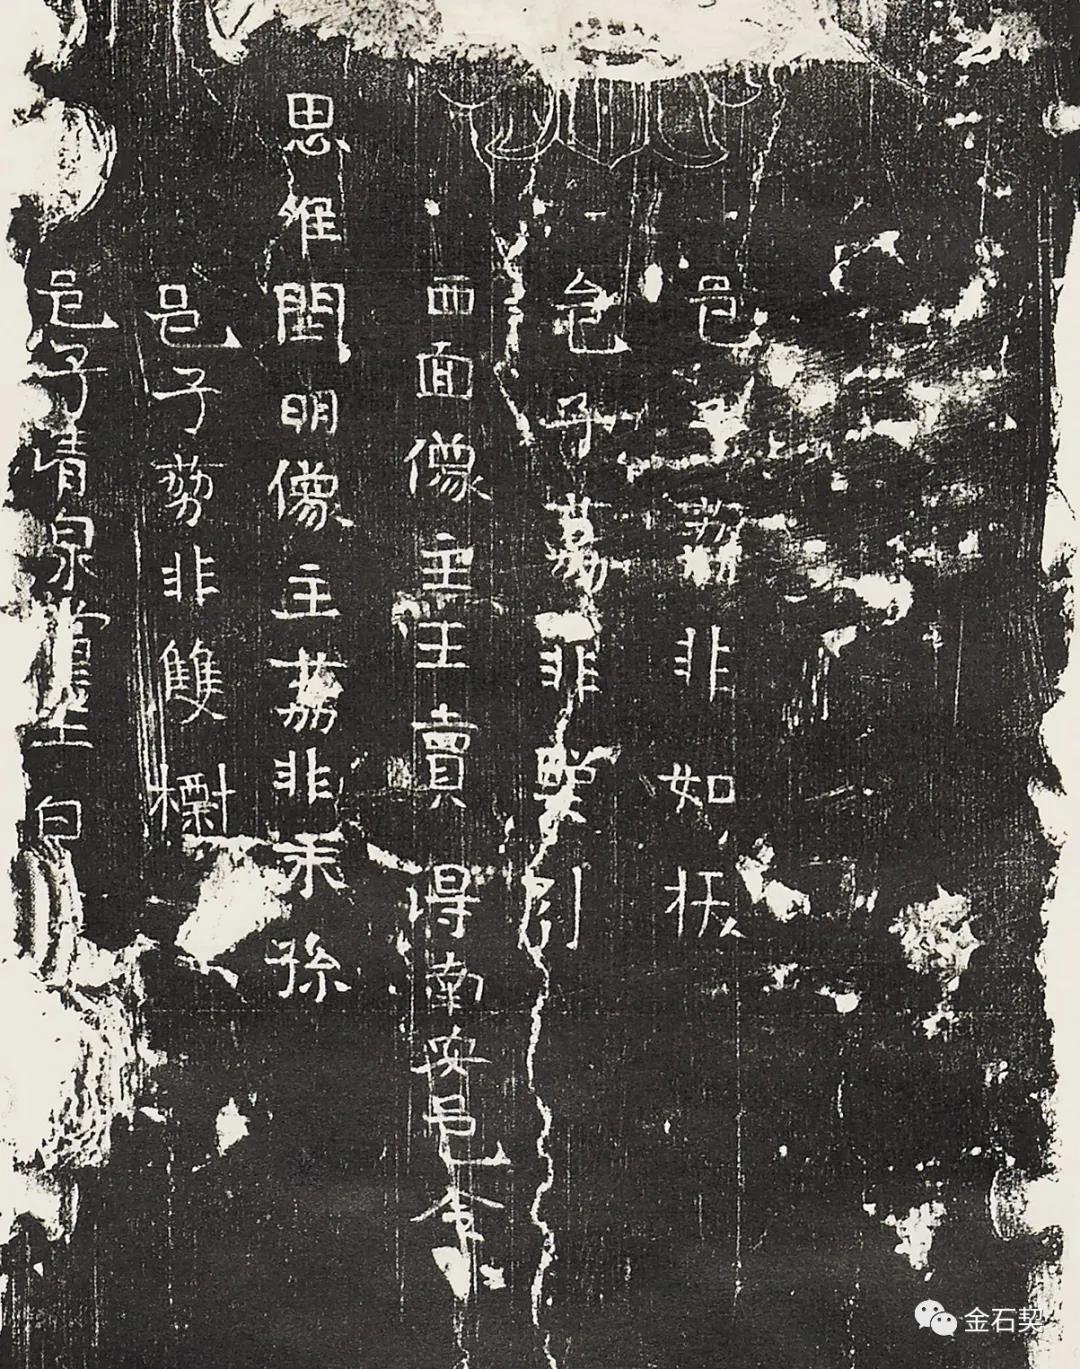 邑子荔非如栿
邑子荔非㗚引
西面像主王賣得南安邑令
思惟開明像主荔非来孫
邑子荔非雙
邑子清泉 白
金石契